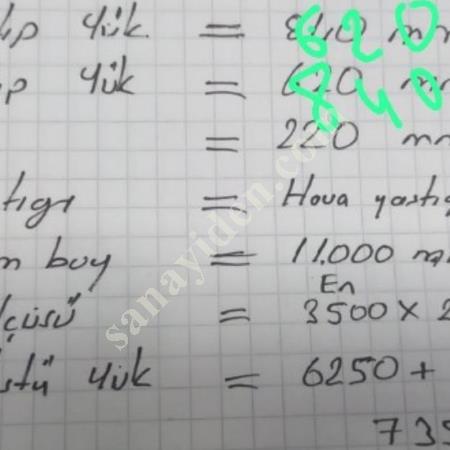 lıp yük = 840 mm 620
ıp yük = 620 mm 840
= 220 mm
tıgı = Hava yastıg
m boy = 11.000 mm
En
lçüsü = 3500 x 2
stü yük = 6250 +
739
sanayiden.com